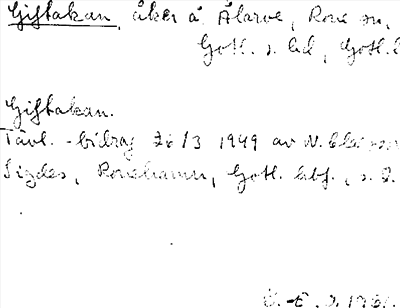 Giftakan, åker å Ålarve, Rone sn,
Gotl. s. hd, Gotl.
Giftakan.
Tävl.-bidrag 26/3 1949 av N.
Sigdes, Ronehamn, Gotl.